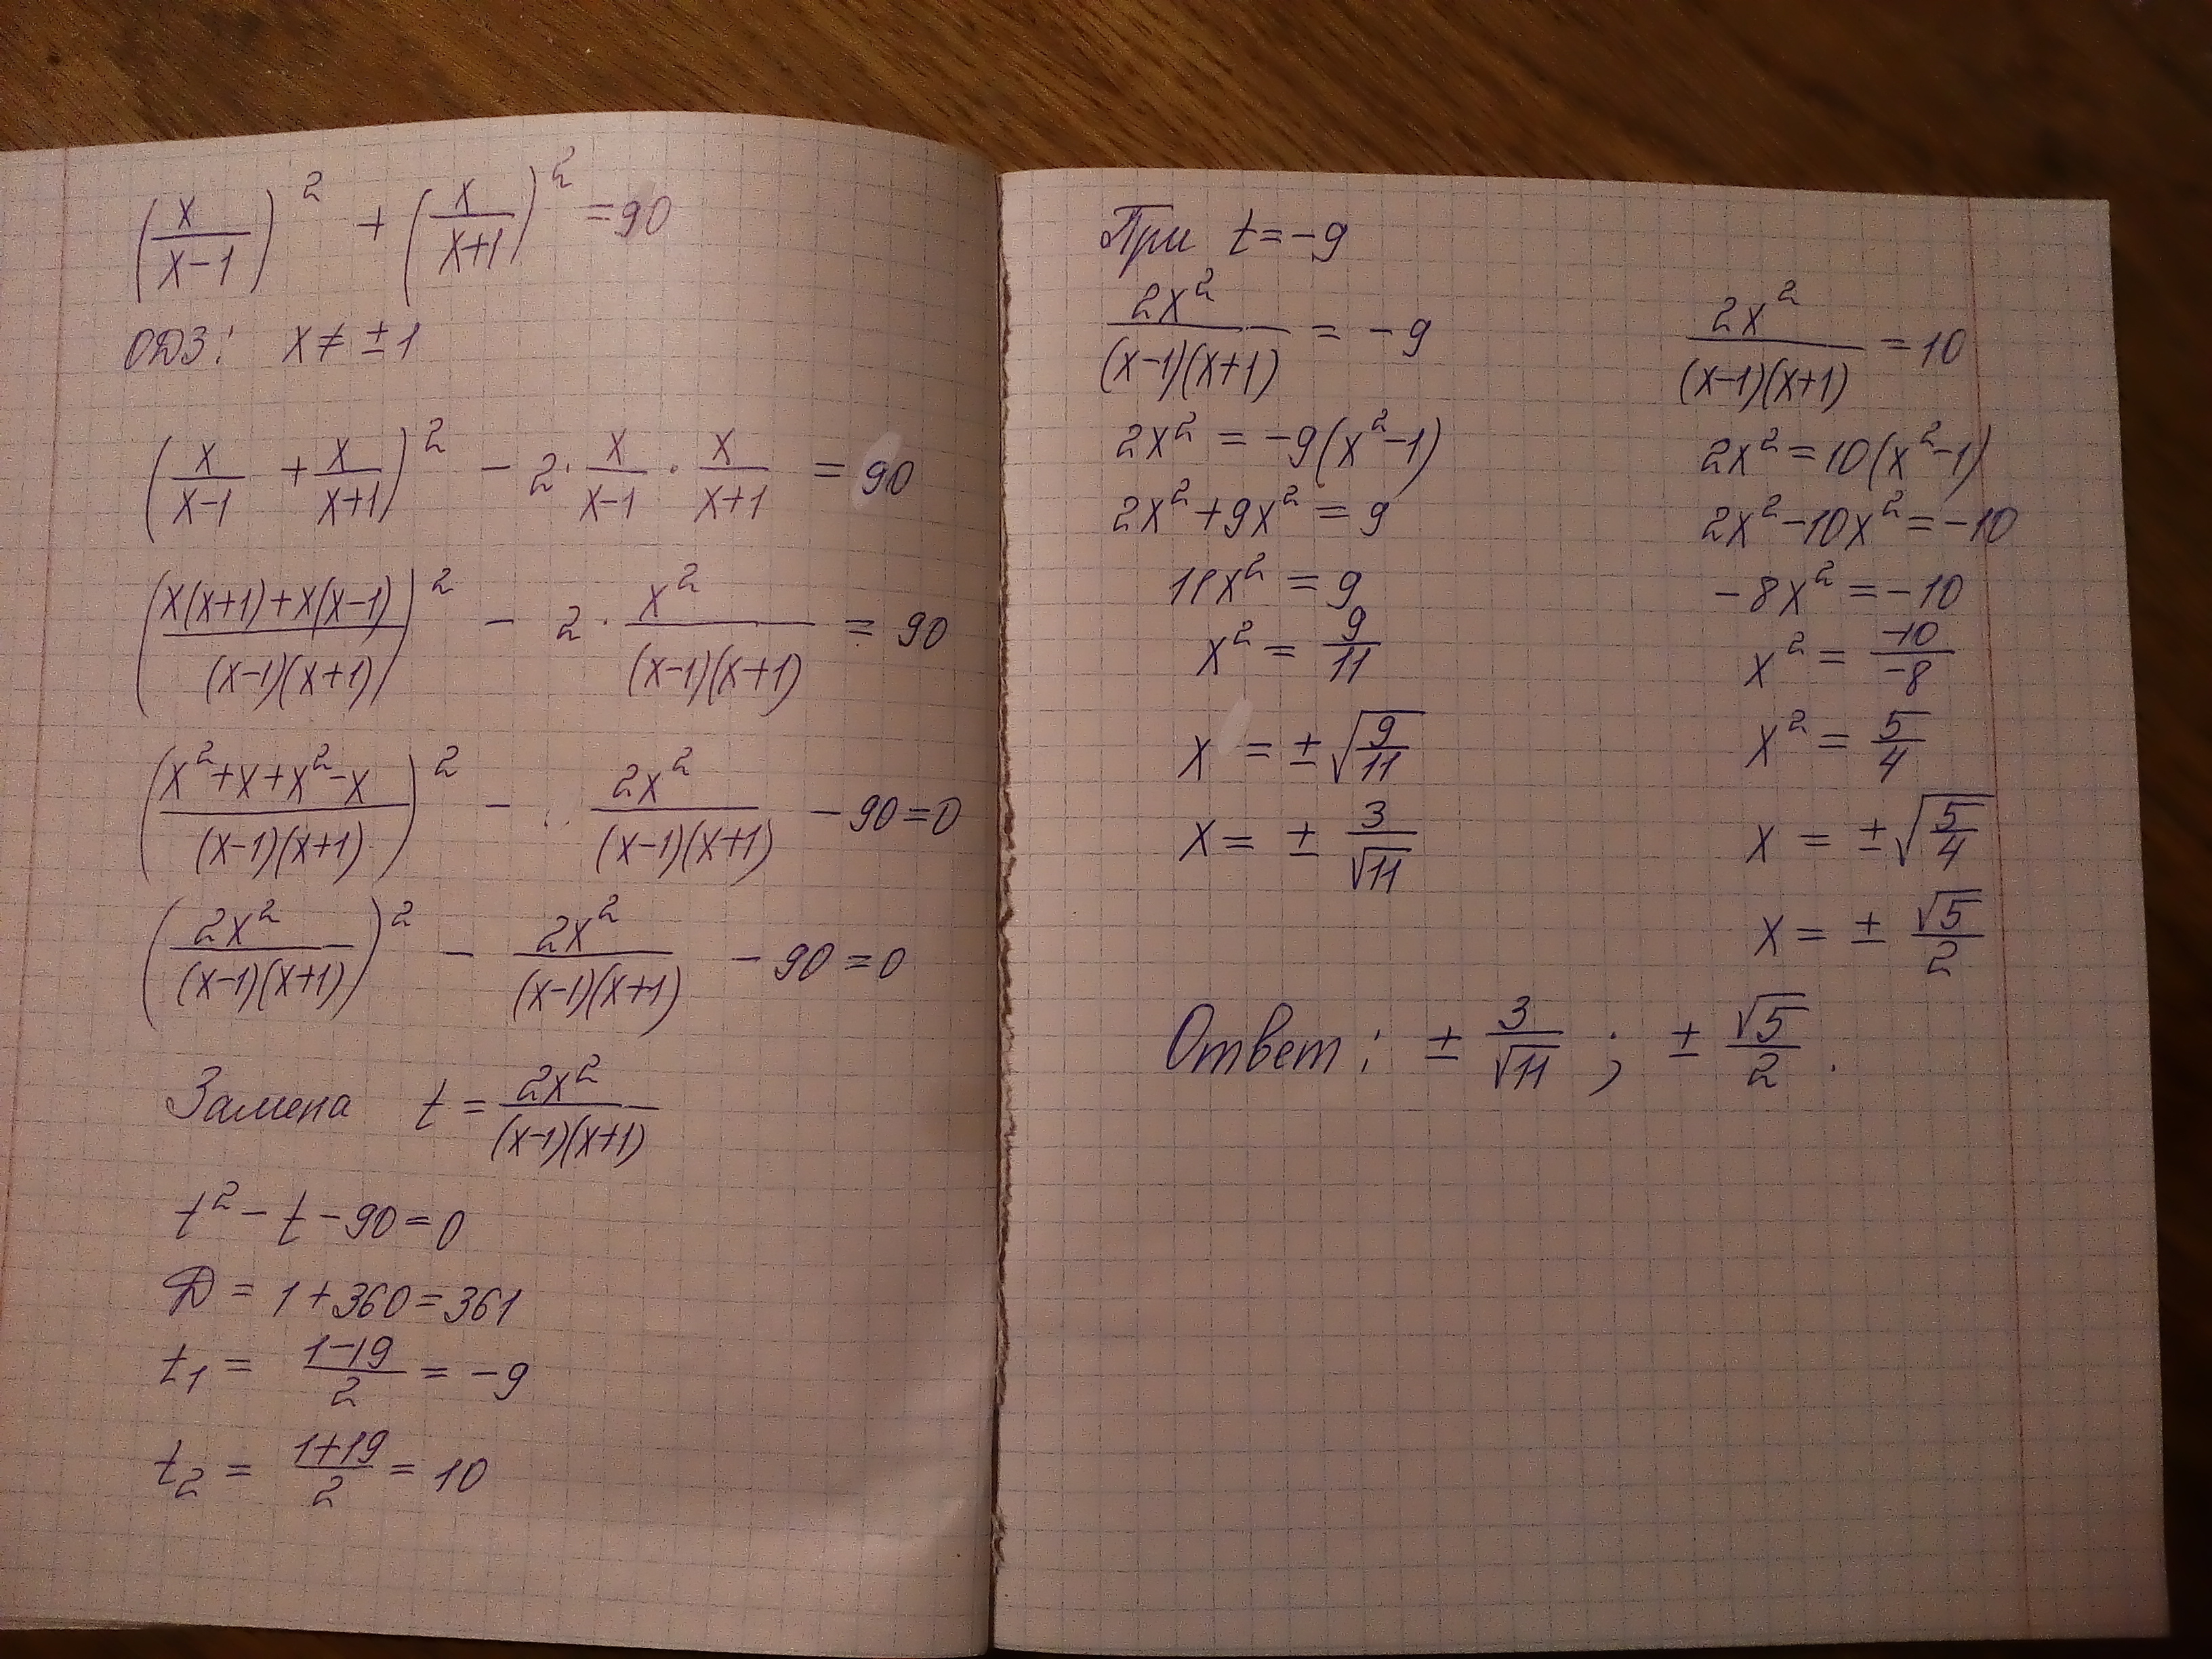 (x/(x-1))² + (x/(x+1))² = 90
ОДЗ: x ≠ ±1
(x/(x-1) + x/(x+1))² - 2·x/(x-1)·x/(x+1) = 90
((x(x+1)+x(x-1))/((x-1)(x+1)))² - 2·x²/((x-1)(x+1)) = 90
((x²+x+x²-x)/((x-1)(x+1)))² - 2x²/((x-1)(x+1)) - 90=0
(2x²/((x-1)(x+1)))² - 2x²/((x-1)(x+1)) - 90=0
Замена t = 2x²/((x-1)(x+1))
t² - t - 90 = 0
Д = 1 + 360 = 361
t₁ = (1-19)/2 = -9
t₂ = (1+19)/2 = 10
При t = -9
2x²/((x-1)(x+1)) = -9
2x² = -9(x²-1)
2x² + 9x² = 9
11x² = 9
x² = 9/11
x = ±√(9/11)
x = ± 3/√11
2x²/((x-1)(x+1)) = 10
2x² = 10(x²-1)
2x² - 10x² = -10
-8x² = -10
x² = -10/-8
x² = 5/4
x = ±√(5/4)
x = ± √5/2
Ответ: ± 3/√11 ; ± √5/2 .